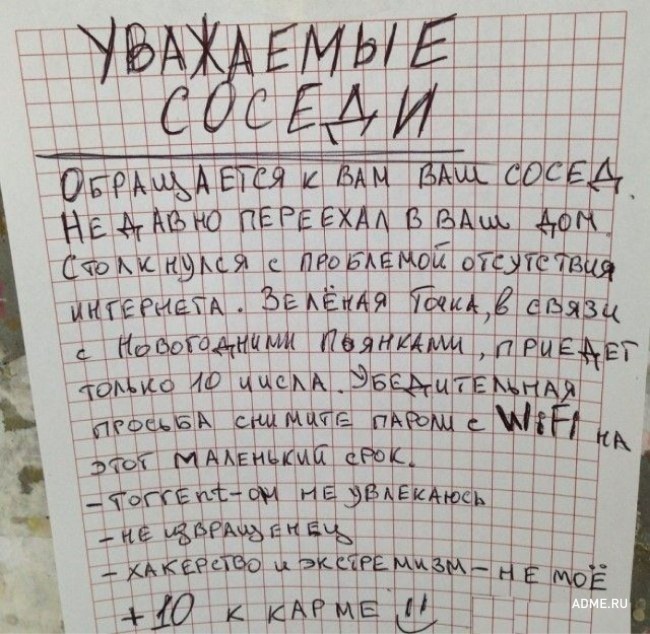 УВАЖАЕМЫЕ
СОСЕДИ
ОБРАЩАЕТСЯ К ВАМ ВАШ СОСЕД.
НЕДАВНО ПЕРЕЕХАЛ В ВАШ ДОМ.
СТОЛКНУЛСЯ С ПРОБЛЕМОЙ ОТСУТСТВИЯ
ИНТЕРНЕТА. ЗЕЛЁНАЯ ТОЧКА, В СВЯЗИ
С НОВОГОДНИМИ ПЬЯНКАМИ, ПРИЕДЕТ
ТОЛЬКО 10 ЧИСЛА. УБЕДИТЕЛЬНАЯ
ПРОСЬБА СНИМИТЕ ПАРОЛИ С WiFi НА
ЭТОТ МАЛЕНЬКИЙ СРОК.
- Torrent-ОМ НЕ УВЛЕКАЮСЬ
- НЕ ИЗВРАЩЕНЕЦ
- ХАКЕРСТВО И ЭКСТРЕМИЗМ - НЕ МОЁ
+10 К КАРМЕ
ADME.RU